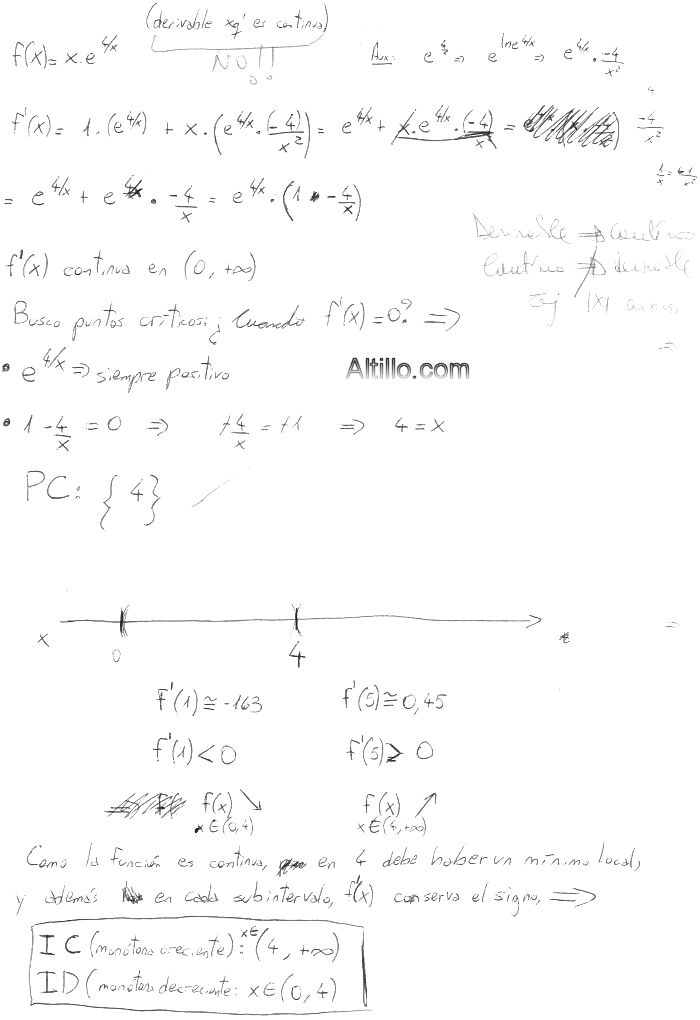 (derivable xq' es continua)
f(x)= x.e^4/x
NO!!
Aux: e^4/x => e^ln e^4/x => e^4/x . -4/x²
f'(x)= 1.(e^4/x) + x.(e^4/x.(-4)/x²)= e^4/x + x.e^4/x.(-4)/x² =
-4/x²
= e^4/x + e^4/x . -4/x = e^4/x.(1 - 4/x)
Derivable => continuo
f'(x) continua en (0, +∞)
Continuo =/> derivable
Ej |x|
Busco puntos críticos: ¿Cuando f'(x)=0? =>
=>
• e^4/x => siempre positivo
Altillo.com
• 1 - 4/x = 0 => +4/x = +1 => 4 = x
PC: {4}
x
0
4
=>
f'(1)≅-163 f'(5)≅0,45
f'(1)<0 f'(5)> 0
f(x) ↘ f(x) ↗
x∈(0,4) x∈(4,+∞)
Como la función es continua, en 4 debe haber un mínimo local,
y además en cada subintervalo, f'(x) conserva el signo, =>
IC (monótona creciente): x∈ (4, +∞)
ID (monótona decreciente: x∈(0,4)